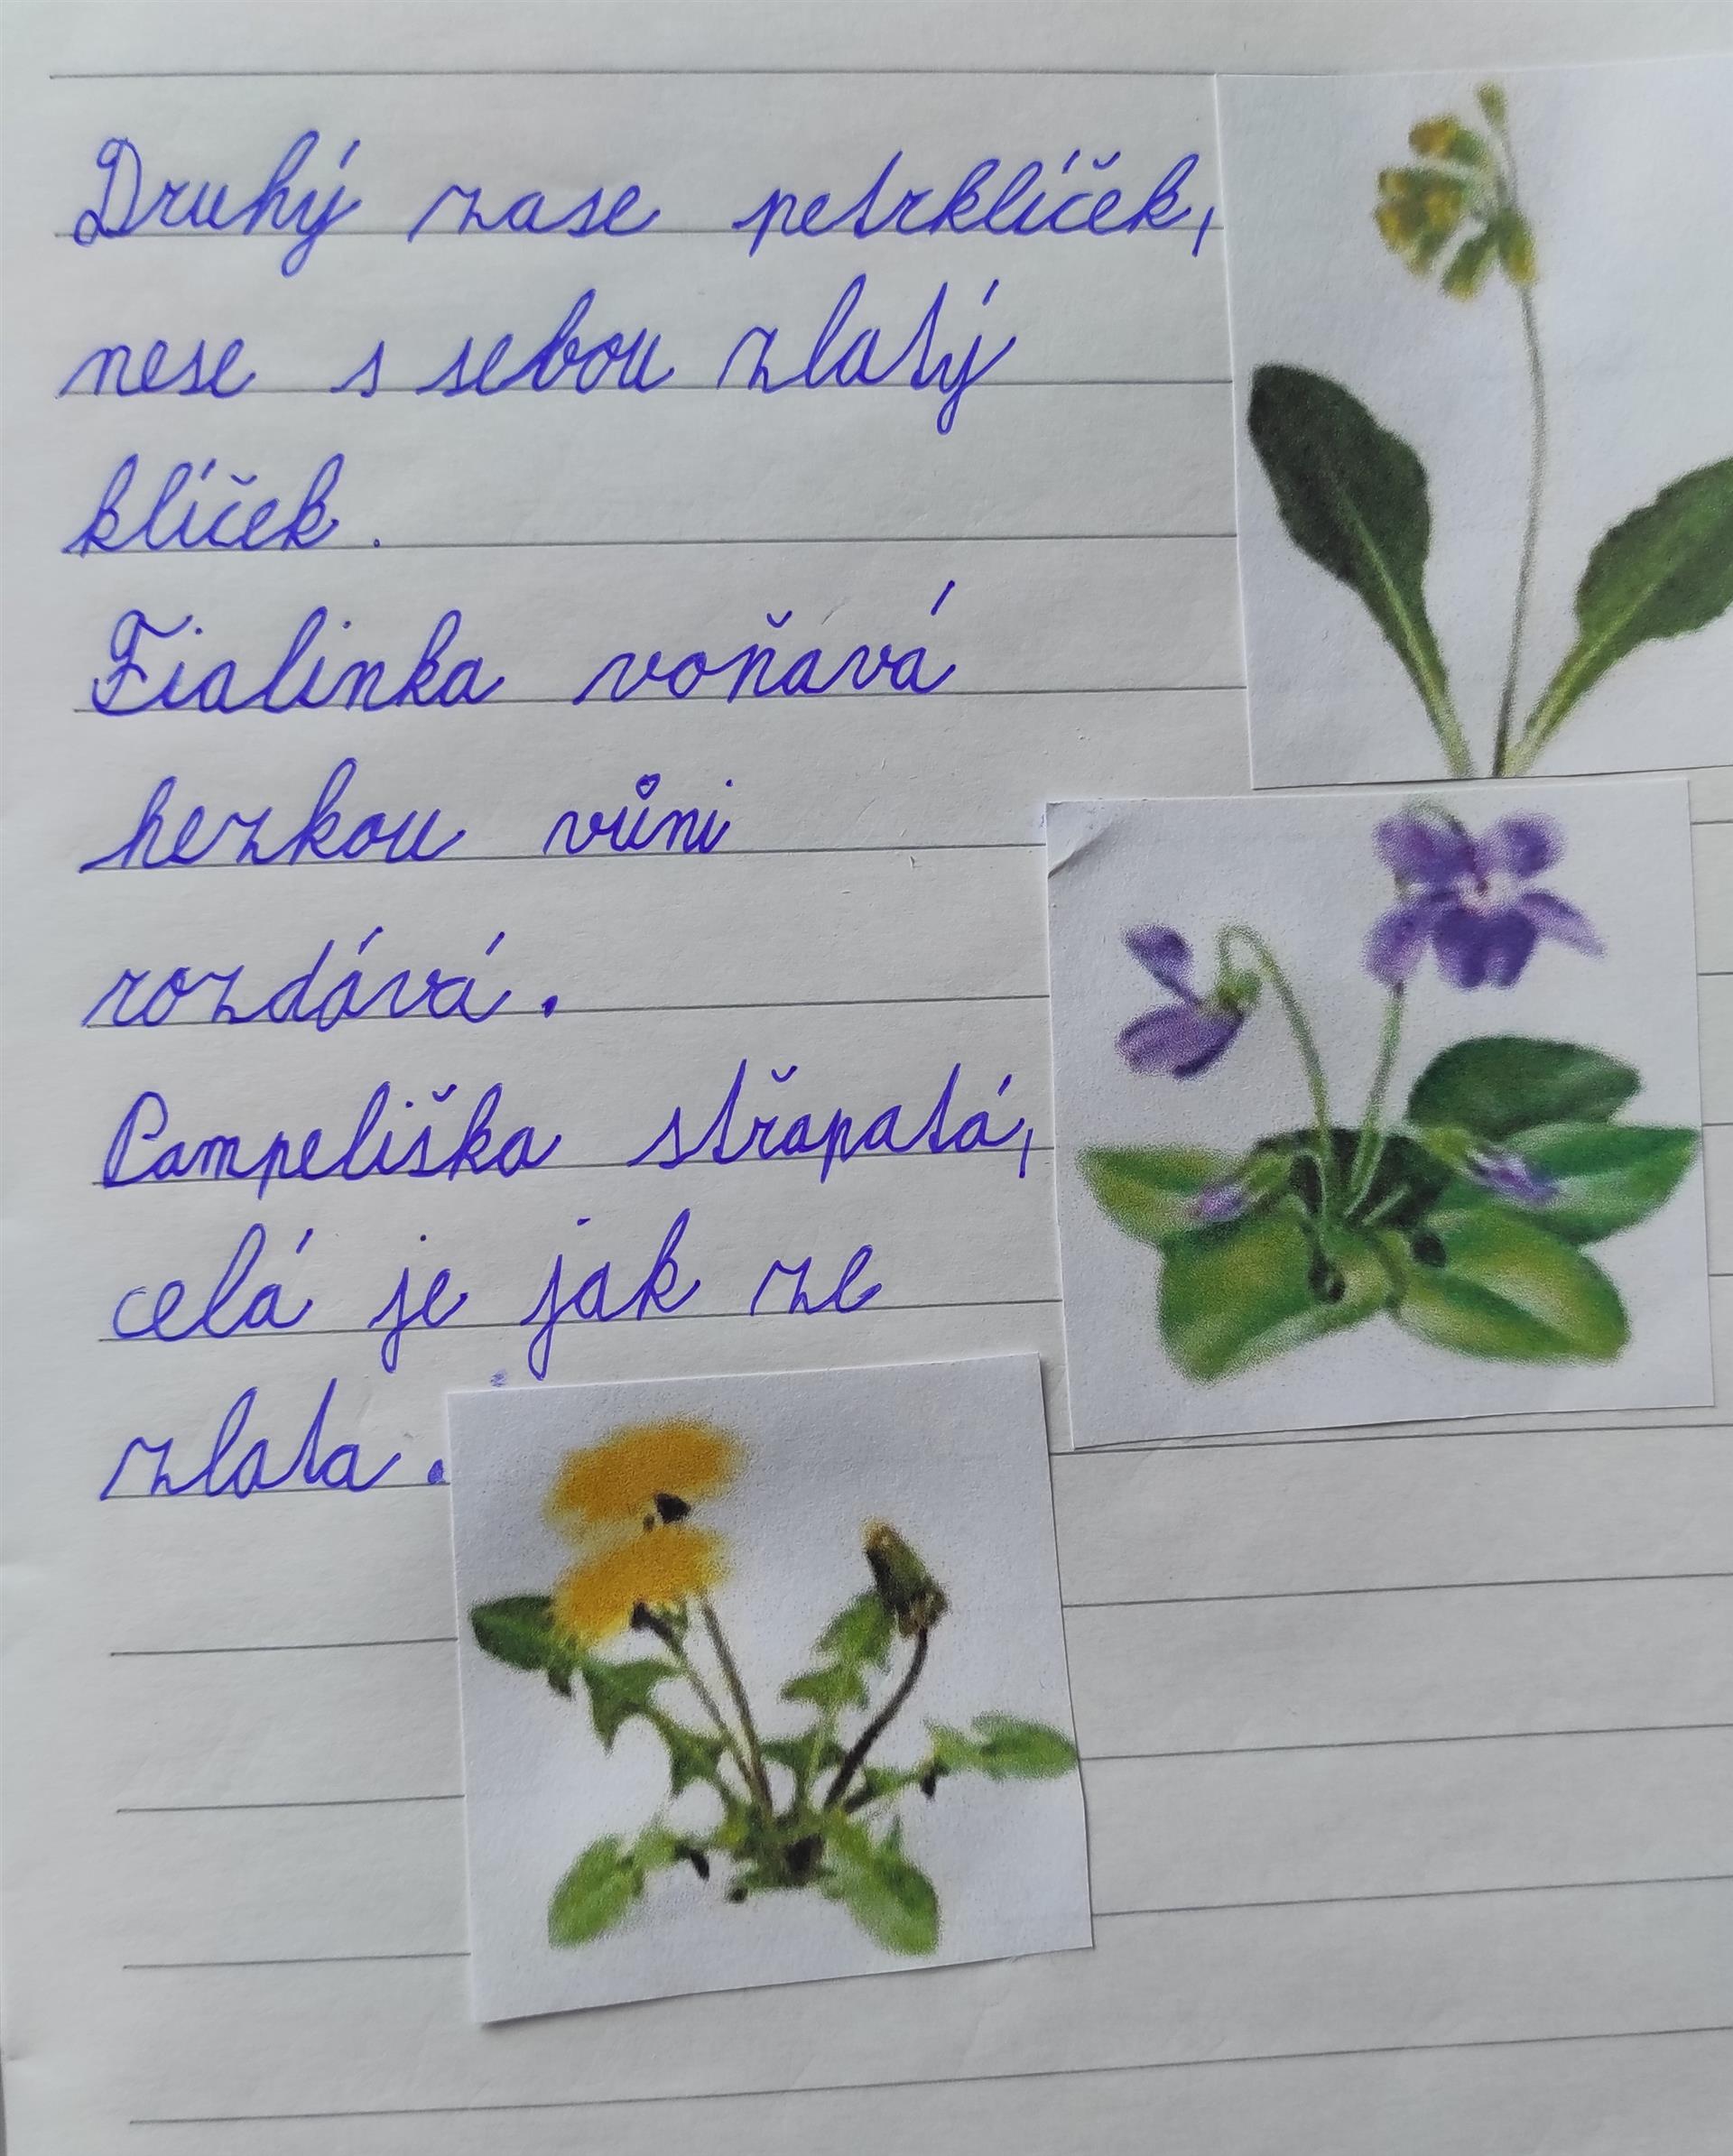 Druhý zase petrklíček,
nese s sebou zlatý
klíček.
Fialinka voňavá
hezkou vůni
rozdává.
Pampeliška střapatá,
celá je jak ze
zlata.